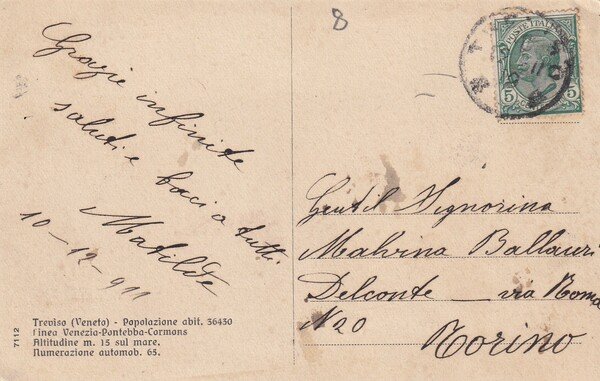 8
POSTE ITALIANE
5 5
Grazie infinite
saluti e baci a tutti
Matilde
10-12-911
Gentil Signorina
Malvina Ballauri
Delconte – via Roma
N 20
Torino
7112
Treviso (Veneto) - Popolazione abit. 36430
Linea Venezia-Pontebba-Cormons
Altitudine m. 15 sul mare.
Numerazione automob. 65.